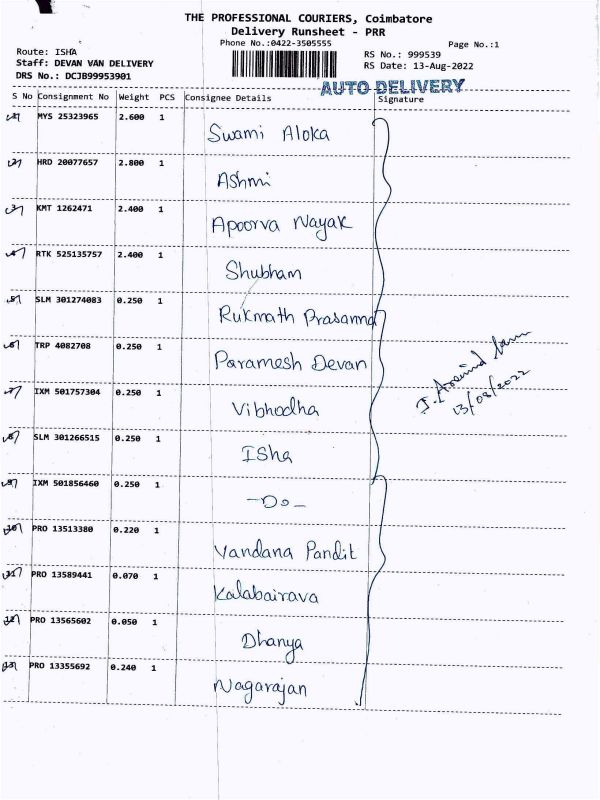 THE PROFESSIONAL COURIERS, Coimbatore
Delivery Runsheet - PRR
Phone No.:0422-3505555
Page No.:1
Route: ISHA
RS No.: 999539
Staff: DEVAN VAN DELIVERY
RS Date: 13-Aug-2022
DRS No.: DCJB99953901
AUTO DELIVERY
S No Consignment No Weight PCS Consignee Details Signature
1 MYS 25323965 2.600 1
Swami Aloka
2 HRD 20077657 2.800 1
Ashmi
3 KMT 1262471 2.400 1
Apoorva Nayak
4 RTK 525135757 2.400 1
Shubham
5 SLM 301274083 0.250 1
Rukmath Prasanna
6 TRP 4082708 0.250 1
Paramesh Devan
7 IXM 501757304 0.250 1
Vibhodha
J. Aravind
13/08/2022
8 SLM 301266515 0.250 1
ISha
9 IXM 501856460 0.250 1
-Do-
10 PRO 13513380 0.220 1
Vandana Pandit
11 PRO 13589441 0.070 1
Kalabairava
12 PRO 13565602 0.050 1
Dhanya
13 PRO 13355692 0.240 1
Nagarajan